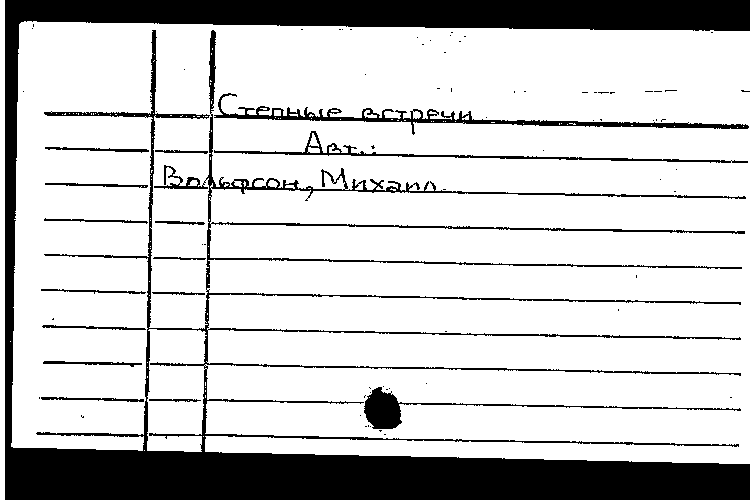 Степные встречи
Авт.:
Вольфсон, Михаил